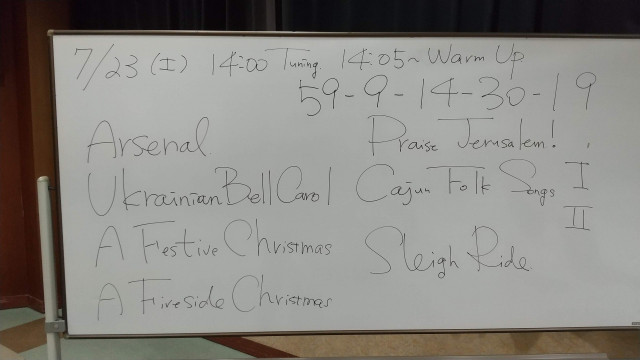 7/23(土) 14:00 Tuning. 14:05~ Warm Up
59-9-14-30-19
Arsenal
Ukrainian Bell Carol
A Festive Christmas
A Fireside Christmas
Praise Jerusalem!
Cajun Folk Songs I
II
Sleigh Ride